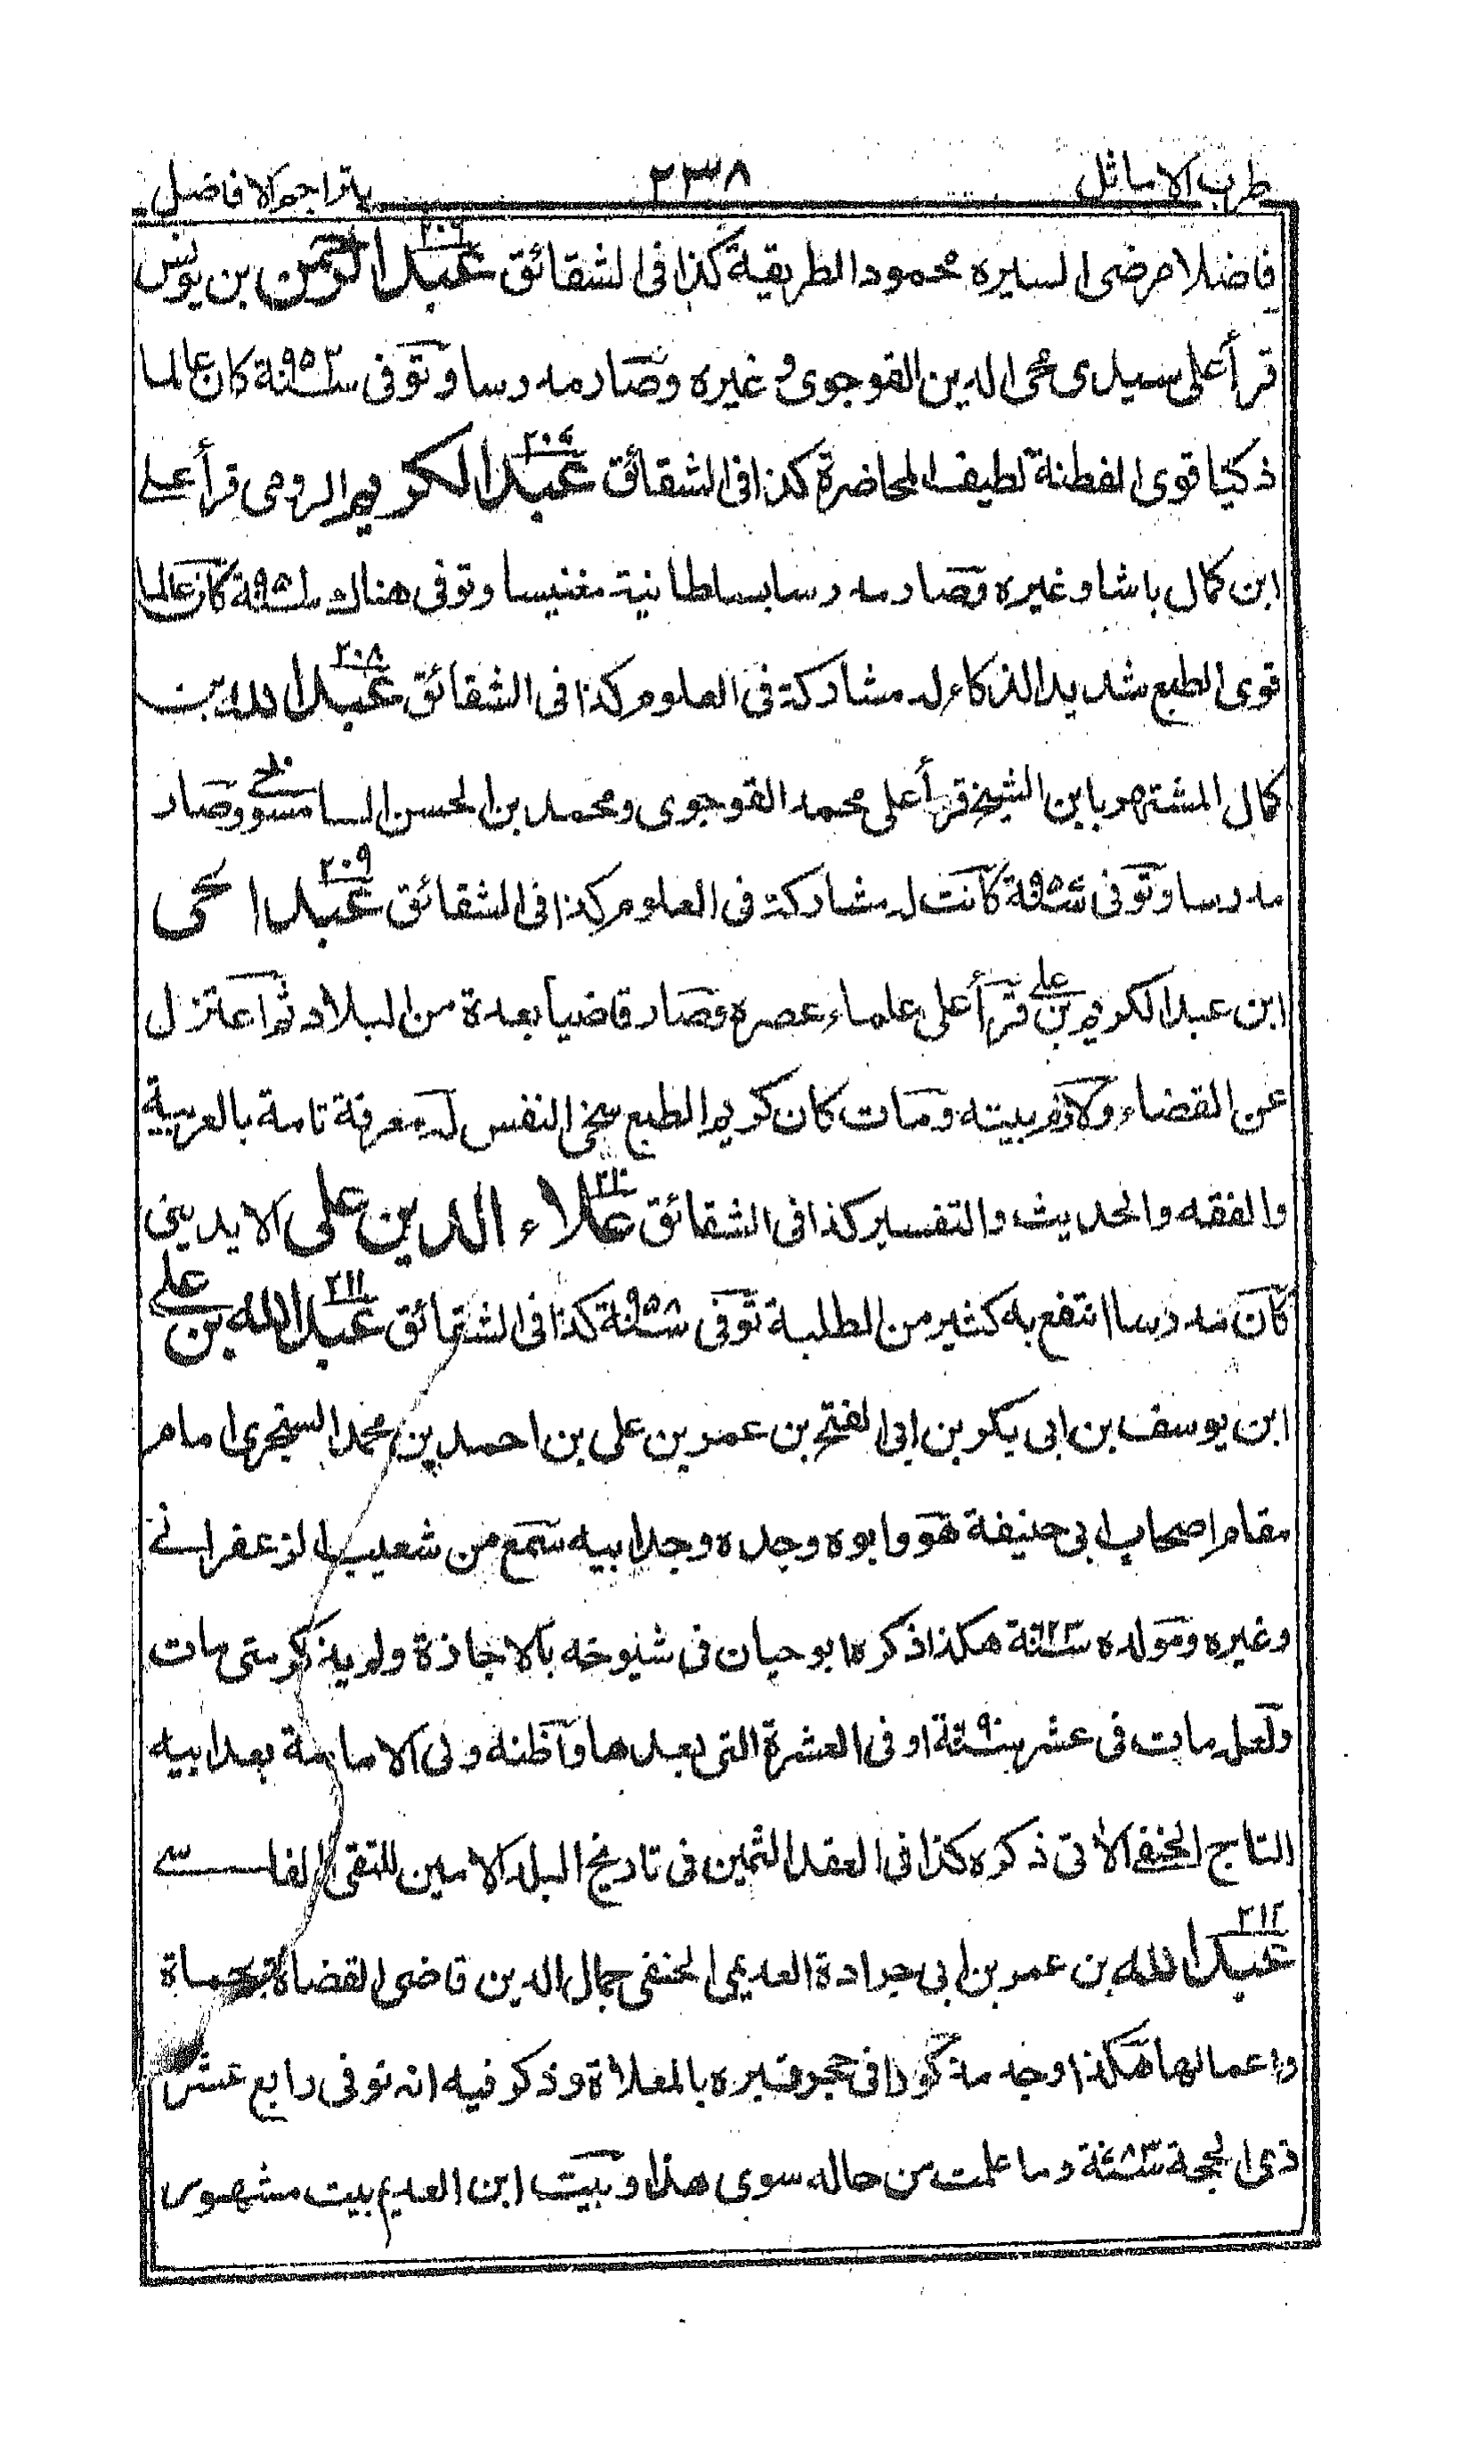 طرب الاماثل ٢٣٨ بتراجم الافاضل
فاضلا مرضى السيره محمود الطريقية كذا فى الشقائق ٢٠٦ عبد الرحمن بن يونس
قرأ على سيدى محى الدين القوجوى و غيره وصار مدرسا وتوفى سنة ٩٥٢ كان عالما
ذكيا قوى الفطنة لطيف المحاضرة كذا فى الشقائق ٢٠٧ عبد الكريم الرومى قرأ على
ابن كمال باشا وغيره وصار مدرسا بسلطانية مغنيسا وتوفى هناك سنة كان عالما
قوى الطبع شديد الذكاء له مشاركة فى العلوم كذا فى الشقائق ٢٠٨ عبد الله بن
كمال المشتهر بابن الشيخ قرأ على محمد القوجوى ومحمد بن الحسن السامسونى وصار
مدرسا وتوفى سنة كانت له مشاركة فى العلوم كذا فى الشقائق ٢٠٩ عبد الحى
ابن عبد الكريم بن على قرأ على علماء عصره وصار قاضيا بعدة من البلاد ثم اعتزل
عن القضاء ولازم بيته ومات كان كريم الطبع سخى النفس له معرفة تامة بالعربية
والفقه والحديث والتفسير كذا فى الشقائق ٢١٠ علاء الدين على الايدينى
كان مدرسا انتفع به كثير من الطلبة توفى سنة ٩٥٨ كذا فى الشقائق ٢١١ عبد الله بن على
ابن يوسف بن ابى بكر بن ابى الفتح بن عمر بن على بن احمد بن محمد السنجرى امام
مقام اصحاب ابى حنيفة هو وابوه وجده وجد ابيه سمع من شعيب الزعفرانے
وغيره ومولده سنة ٦٢٣ هكذا ذكره ابو حيان فى شيوخه بالاجازة ولم يذكر متى مات
ولعله مات فى عشر سنة ٦٩٠ او فى العشرة التى بعدها واظنه ولى الامامة بعد ابيه
التاج الحنفے الآتى ذكره كذا فى العقد الثمين فى تاريخ البلد الامين للتقى الفاسے
٢١٢ عبد الله بن عمر بن ابى جرادة العديمى الحنفى جمال الدين قاضى القضاة بحماة
واعمالها هكذا وجد مذكورا فى حجر قبره بالمعلاة وذكر فيه انه توفى رابع عشر
ذى الحجة سنة وما علمت من حاله سوى هذا وبيت ابن العديم بيت مشهور